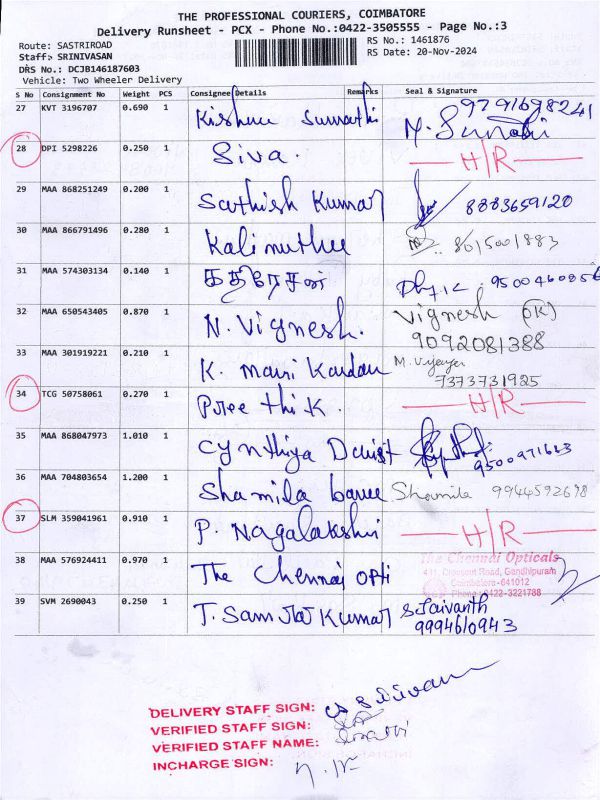 THE PROFESSIONAL COURIERS, COIMBATORE
Delivery Runsheet - PCX - Phone No.:0422-3505555 - Page No.:3
Route: SASTRIROAD RS No.: 1461876
Staff: SRINIVASAN RS Date: 20-Nov-2024
DRS No.: DCJB146187603
Vehicle: Two Wheeler Delivery
S No Consignment No Weight PCS Consignee Details Remarks Seal & Signature
27 KVT 3196707 0.690 1 Kishore Sumathi 9791698241
28 DPI 5298226 0.250 1 Siva. H/R
29 MAA 868251249 0.200 1 Sathish Kumar 8883659120
30 MAA 866791496 0.280 1 Kalimuthu 8015001883
31 MAA 574303134 0.140 1 கதிரேசன் 9500460856
32 MAA 650543405 0.870 1 N. Vignesh. Vignesh
9092081388
33 MAA 301919221 0.210 1 K. Mani Kandan M.
7373731925
34 TCG 50758061 0.270 1 Preethi K. H/R
35 MAA 868047973 1.010 1 Cynthiya 9500971643
36 MAA 704803654 1.200 1 Shamila Shamila 9944592698
37 SLM 359041961 0.910 1 P. Nagalakshmi H/R
38 MAA 576924411 0.970 1 The Chennai Opti The Chennai Opticals
Road, Gandhipuram
Coimbatore-641012
Phone: 0422-3221788
39 SVM 2690043 0.250 1 T. Kumar S. Jaivanth
9994610943
DELIVERY STAFF SIGN:
VERIFIED STAFF SIGN:
VERIFIED STAFF NAME:
INCHARGE SIGN: